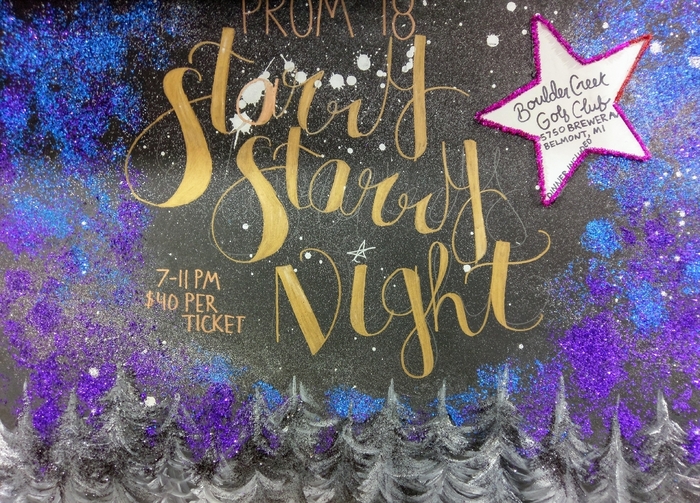 PROM '18
Starry
Starry
Night
7-11 PM
$40 PER
TICKET
Boulder Creek
Golf Club
5750 BREWER AV
BELMONT, MI